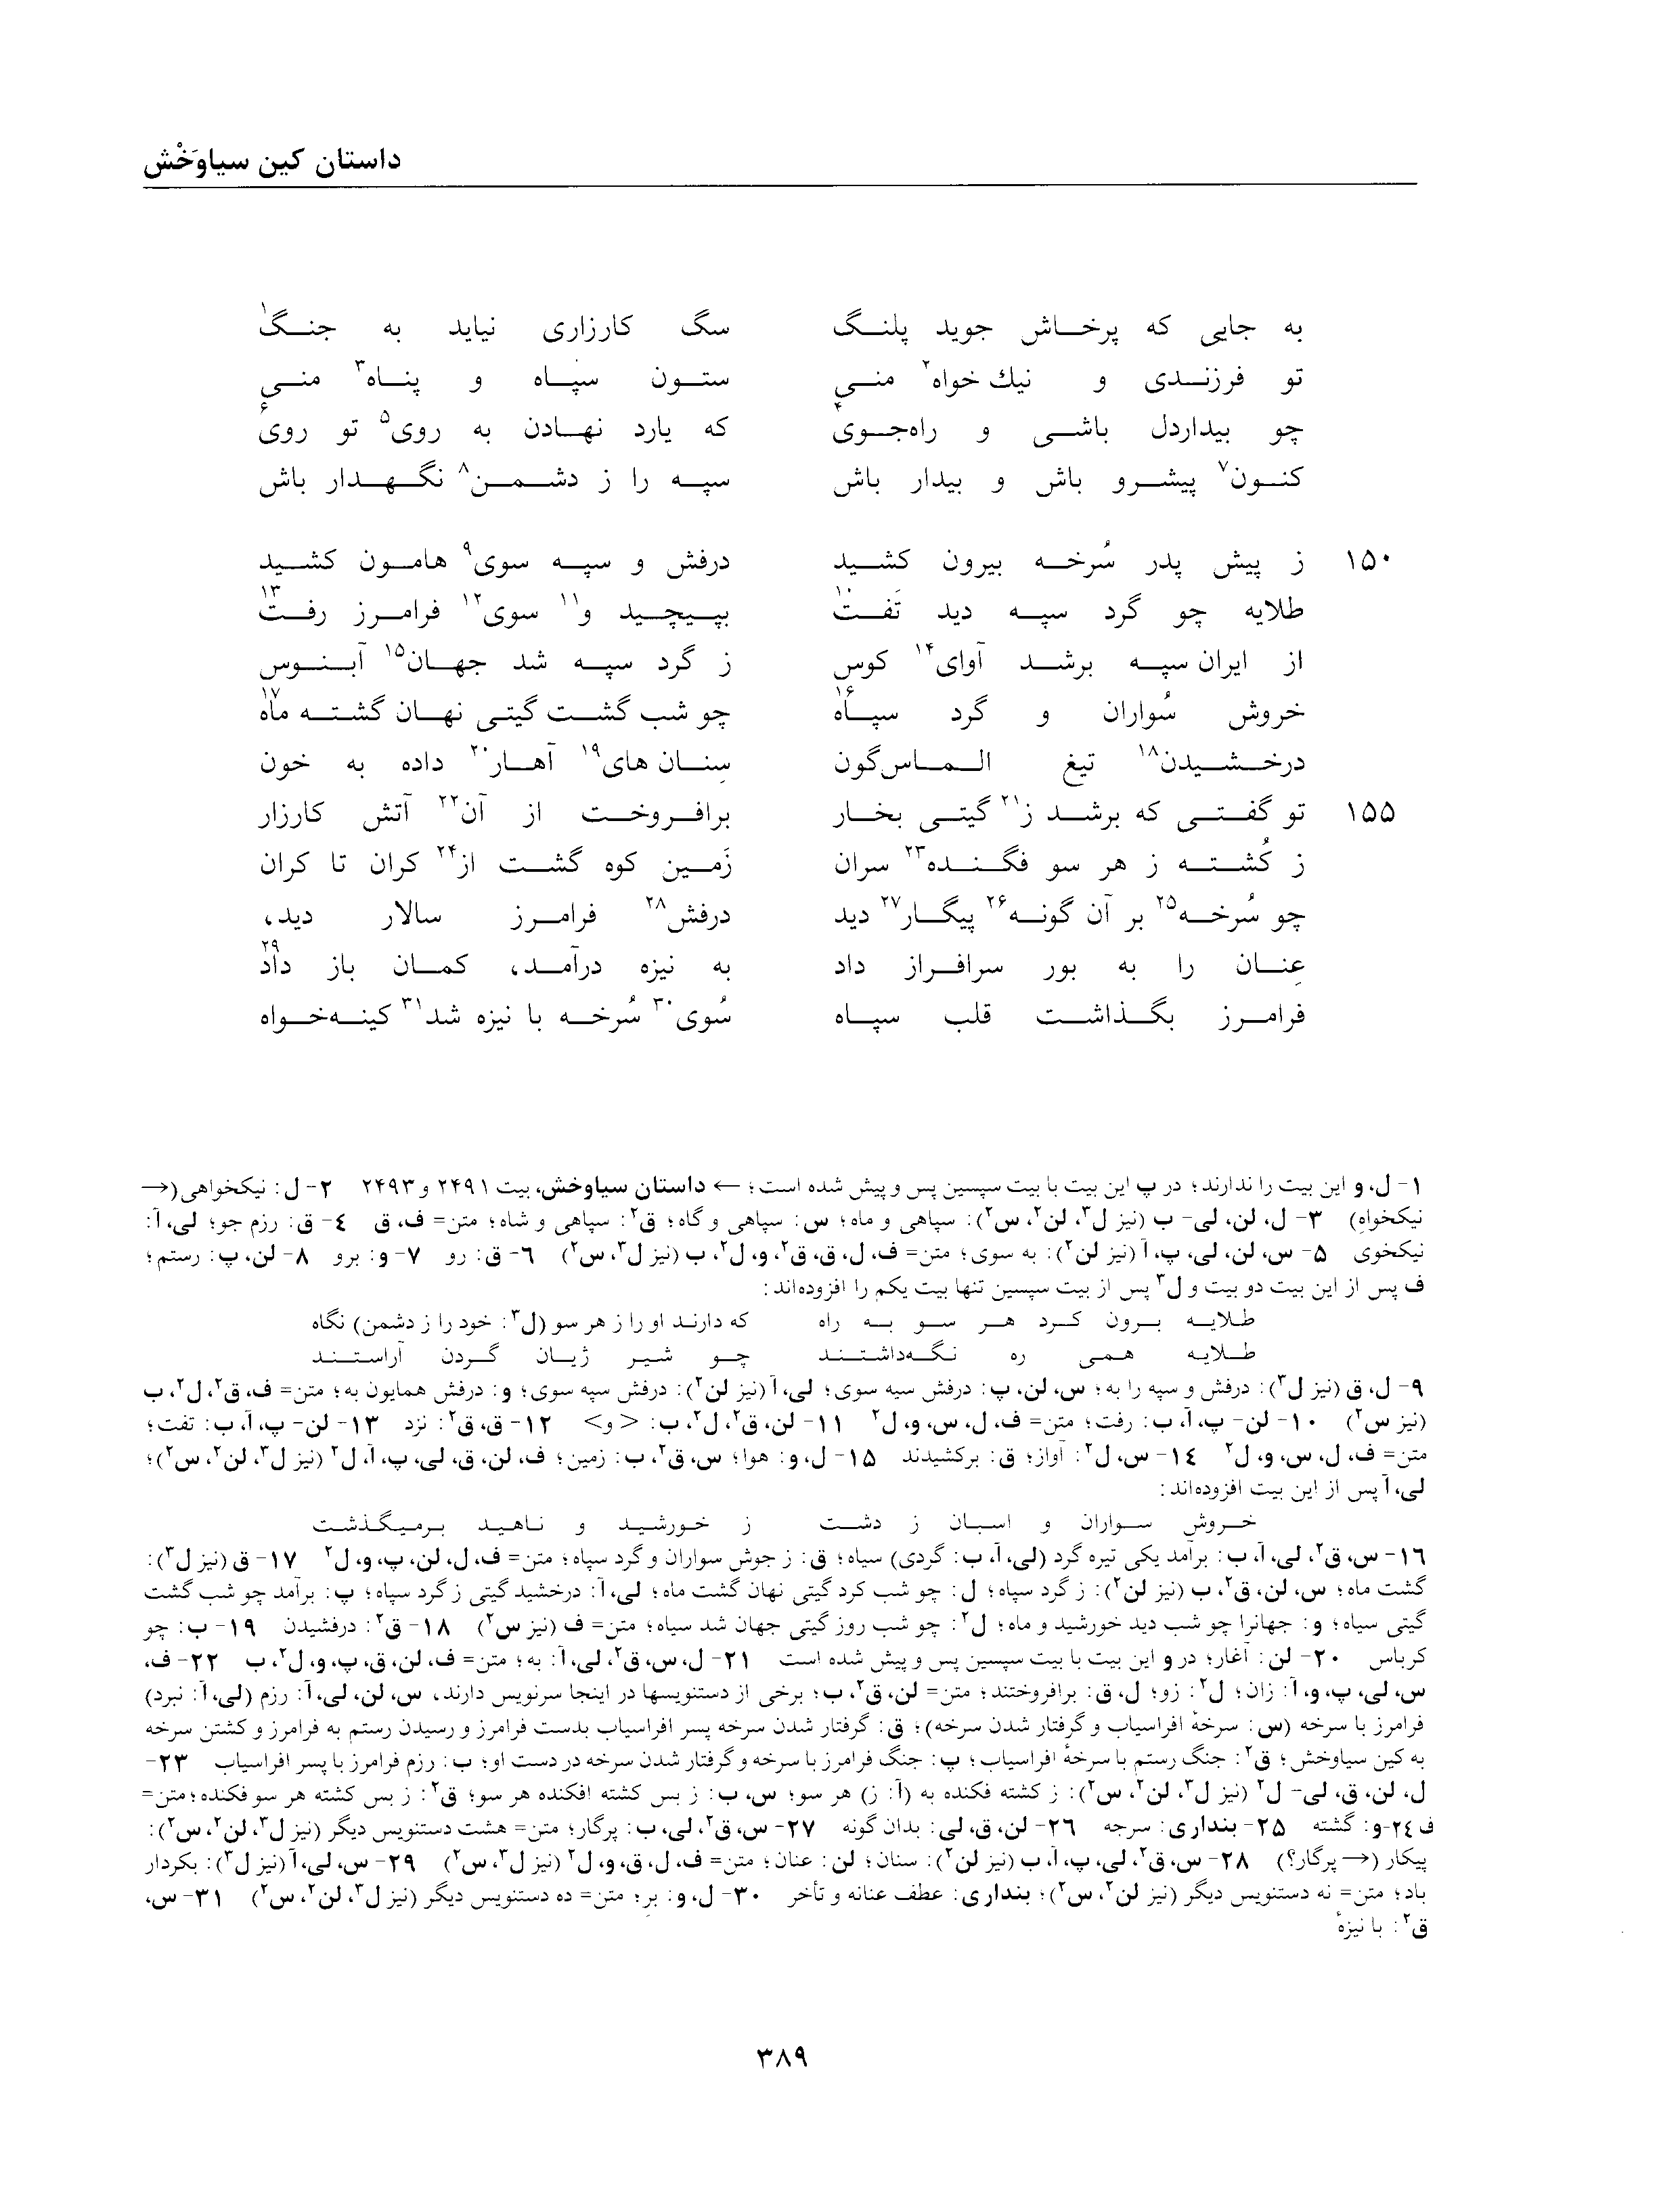 داستان کین سیاوَخْش
به جایی که پرخاش جوید پلنگ سگ کارزاری نیاید به جنگ۱
تو فرزندی و نیك خواه۲ منی ستون سپاه و پناه۳ منی
چو بیداردل باشی و راه‌جوی۴ که یارد نهادن به روی۵ تو روی۶
کنون۷ پیشرو باش و بیدار باش سپه را ز دشمن۸ نگهدار باش
۱۵۰ ز پیش پدر سُرخه بیرون کشید درفش و سپه سوی۹ هامون کشید
طلایه چو گرد سپه دید تَفت۱۰ بپیچید و۱۱ سوی۱۲ فرامرز رفت۱۳
از ایران سپه برشد آوای۱۴ کوس ز گرد سپه شد جهان۱۵ آبنوس
خروش سُواران و گرد سپاه۱۶ چو شب گشت گیتی نهان گشته ماه۱۷
درخشیدن۱۸ تیغ الماس‌گون سِنان های۱۹ آهار۲۰ داده به خون
۱۵۵ تو گفتی که برشد ز۲۱ گیتی بخار برافروخت از آن۲۲ آتش کارزار
ز کُشته ز هر سو فگنده۲۳ سران زَمین کوه گشت از۲۴ کران تا کران
چو سُرخه۲۵ بر آن گونه۲۶ پیگار۲۷ دید درفش۲۸ فرامرز سالار دید،
عِنان را به بور سرافراز داد به نیزه درآمد، کمان باز داد۲۹
فرامرز بگذاشت قلب سپاه سُوی۳۰ سُرخه با نیزه شد۳۱ کینه‌خواه
۱- ل، و این بیت را ندارند؛ در پ این بیت با بیت سپسین پس و پیش شده است؛ ← داستان سیاوخش، بیت ۲۴۹۱ و ۲۴۹۳ ۲- ل: نیکخواهی (→
نیکخواهِ) ۳- ل، لن، لی- ب (نیز ل۳، لن۲، س۲): سپاهی و ماه؛ س: سپاهی و گاه؛ ق۲: سپاهی و شاه؛ متن= ف، ق ۴- ق: رزم جو؛ لی، آ:
نیکخوی ۵- س، لن، لی، پ، آ (نیز لن۲): به سوی؛ متن= ف، ل، ق، ق۲، و، ل۲، ب (نیز ل۳، س۲) ۶- ق: رو ۷- و: برو ۸- لن، پ: رستم؛
ف پس از این بیت دو بیت و ل۳ پس از بیت سپسین تنها بیت یکم را افزوده‌اند:
طلایه برون کرد هر سو به راه که دارند او را ز هر سو (ل۳: خود را ز دشمن) نگاه
طلایه همی ره نگه‌داشتند چو شیر ژیان گردن آراستند
۹- ل، ق (نیز ل۳): درفش و سپه را به؛ س، لن، پ: درفش سیه سوی؛ لی، آ (نیز لن۲): درفش سپه سوی؛ و: درفش همایون به؛ متن= ف، ق۲، ل۲، ب
(نیز س۲) ۱۰- لن- پ، آ، ب: رفت؛ متن= ف، ل، س، و، ل۲ ۱۱- لن، ق۲، ل۲، ب: <و> ۱۲- ق، ق۲: نزد ۱۳- لن- پ، آ، ب: تفت؛
متن= ف، ل، س، و، ل۲ ۱۴- س، ل۲: آواز؛ ق: برکشیدند ۱۵- ل، و: هوا؛ س، ق۲، ب: زمین؛ ف، لن، ق، لی، پ، آ، ل۲ (نیز ل۳، لن۲، س۲)؛
لی، آ پس از این بیت افزوده‌اند:
خروش سواران و اسبان ز دشت ز خورشید و ناهید برمیگذشت
۱۶- س، ق۲، لی، آ، ب: برآمد یکی تیره گرد (لی، آ، ب: گردی) سیاه؛ ق: ز جوش سواران و گرد سپاه؛ متن= ف، ل، لن، پ، و، ل۲ ۱۷- ق (نیز ل۳):
گشت ماه؛ س، لن، ق۲، ب (نیز لن۲): ز گرد سپاه؛ ل: چو شب کرد گیتی نهان گشت ماه؛ لی، آ: درخشید گیتی ز گرد سپاه؛ پ: برآمد چو شب گشت
گیتی سیاه؛ و: جهانرا چو شب دید خورشید و ماه؛ ل۲: چو شب روز گیتی جهان شد سیاه؛ متن= ف (نیز س۲) ۱۸- ق۲: درفشیدن ۱۹- ب: چو
کرباس ۲۰- لن: آغار؛ در و این بیت با بیت سپسین پس و پیش شده است ۲۱- ل، س، ق۲، لی، آ: به؛ متن= ف، لن، ق، پ، و، ل۲، ب ۲۲- ف،
س، لی، پ، و، آ: زان؛ ل۲: زو؛ ل، ق: برافروختند؛ متن= لن، ق۲، ب؛ برخی از دستنویسها در اینجا سرنویس دارند، س، لن، لی، آ: رزم (لی، آ: نبرد)
فرامرز با سرخه (س: سرخهٔ افراسیاب و گرفتار شدن سرخه)؛ ق: گرفتار شدن سرخه پسر افراسیاب بدست فرامرز و رسیدن رستم به فرامرز و کشتن سرخه
به کین سیاوخش؛ ق۲: جنگ رستم با سرخهٔ افراسیاب؛ پ: جنگ فرامرز با سرخه و گرفتار شدن سرخه در دست او؛ ب: رزم فرامرز با پسر افراسیاب ۲۳-
ل، لن، ق، لی- ل۲ (نیز ل۳، لن۲، س۲): ز کشته فکنده به (آ: ز) هر سو؛ س، ب: ز بس کشته افکنده هر سو؛ ق۲: ز بس کشته هر سو فکنده؛ متن=
ف ۲۴-و: گشته ۲۵- بنداری: سرجه ۲۶- لن، ق، لی: بدان گونه ۲۷- س، ق۲، لی، ب: پرگار؛ متن= هشت دستنویس دیگر (نیز ل۳، لن۲، س۲):
پیکار (→ پرگار؟) ۲۸- س، ق۲، لی، پ، آ، ب (نیز لن۲): سنان؛ لن: عنان؛ متن= ف، ل، ق، و، ل۲ (نیز ل۳، س۲) ۲۹- س، لی، آ (نیز ل۳): بکردار
باد؛ متن= نه دستنویس دیگر (نیز لن۲، س۲)؛ بنداری: عطف عنانه و تأخر ۳۰- ل، و: برِ؛ متن= ده دستنویس دیگر (نیز ل۳، لن۲، س۲) ۳۱- س،
ق۲: با نیزهٔ
۳۸۹